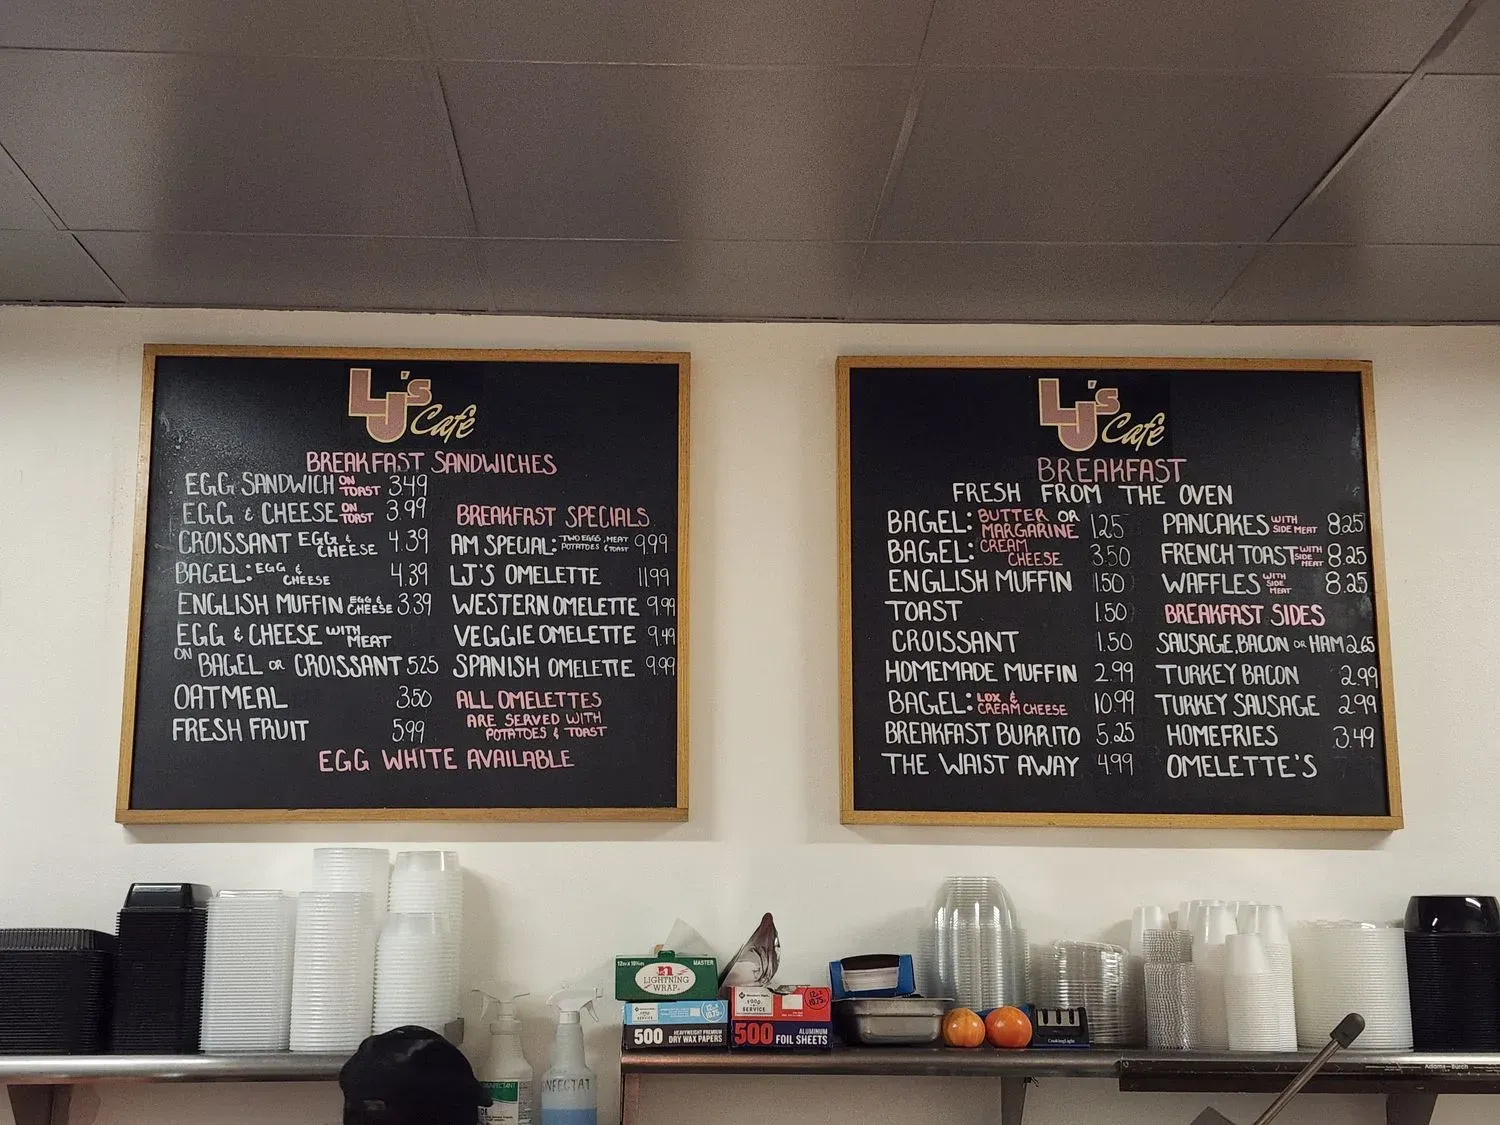 LJ's Café
BREAKFAST SANDWICHES
EGG SANDWICH ON TOAST 3.49
EGG & CHEESE ON TOAST 3.99
CROISSANT EGG & CHEESE 4.39
BAGEL: EGG & CHEESE 4.39
ENGLISH MUFFIN EGG & CHEESE 3.39
EGG & CHEESE WITH MEAT
ON BAGEL OR CROISSANT 5.25
OATMEAL 3.50
FRESH FRUIT 5.99
BREAKFAST SPECIALS
AM SPECIAL: TWO EGGS, MEAT POTATOES & TOAST 9.99
LJ'S OMELETTE 11.99
WESTERN OMELETTE 9.99
VEGGIE OMELETTE 9.49
SPANISH OMELETTE 9.99
ALL OMELETTES
ARE SERVED WITH
POTATOES & TOAST
EGG WHITE AVAILABLE
LJ's Café
BREAKFAST
FRESH FROM THE OVEN
BAGEL: BUTTER OR MARGARINE 1.25
BAGEL: CREAM CHEESE 3.50
ENGLISH MUFFIN 1.50
TOAST 1.50
CROISSANT 1.50
HOMEMADE MUFFIN 2.99
BAGEL: LOX & CREAM CHEESE 10.99
BREAKFAST BURRITO 5.25
THE WAIST AWAY 4.99
PANCAKES WITH SIDE MEAT 8.25
FRENCH TOAST WITH SIDE MEAT 8.25
WAFFLES WITH SIDE MEAT 8.25
BREAKFAST SIDES
SAUSAGE, BACON OR HAM 2.65
TURKEY BACON 2.99
TURKEY SAUSAGE 2.99
HOMEFRIES 3.49
OMELETTE'S
MASTER
LIGHTNING
WRAP
FOOD
SERVICE
500 HEAVYWEIGHT PREMIUM
DRY WAX PAPERS
FOOD
SERVICE
500 ALUMINUM
FOIL SHEETS
CookingLight
Adams-Burch